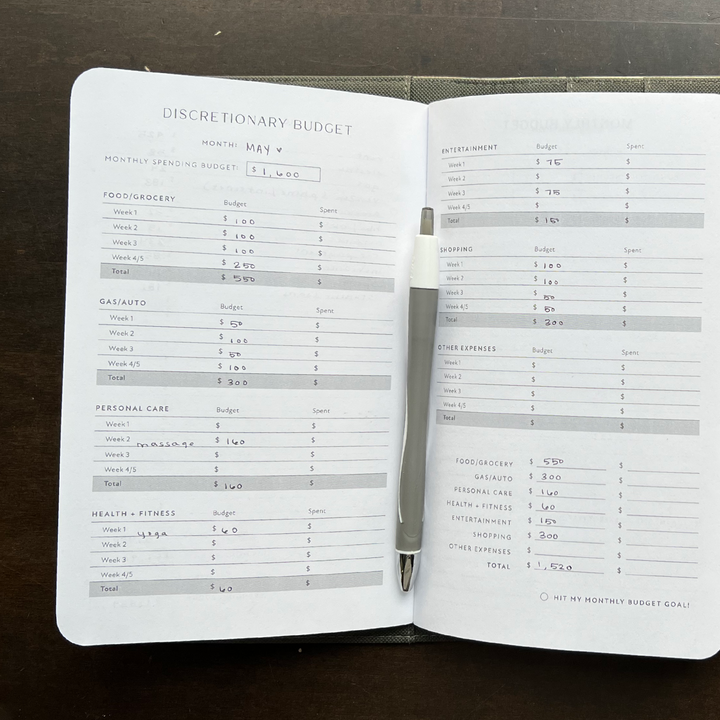 DISCRETIONARY BUDGET
MONTH: MAY ♥
MONTHLY SPENDING BUDGET: $ 1,600
FOOD/GROCERY Budget Spent
Week 1 $ 100 $
Week 2 $ 100 $
Week 3 $ 100 $
Week 4/5 $ 250 $
Total $ 550 $
GAS/AUTO Budget Spent
Week 1 $ 50 $
Week 2 $ 100 $
Week 3 $ 50 $
Week 4/5 $ 100 $
Total $ 300 $
PERSONAL CARE Budget Spent
Week 1 $ $
Week 2 massage $ 160 $
Week 3 $ $
Week 4/5 $ $
Total $ 160 $
HEALTH + FITNESS Budget Spent
Week 1 yoga $ 60 $
Week 2 $ $
Week 3 $ $
Week 4/5 $ $
Total $ 60 $
ENTERTAINMENT Budget Spent
Week 1 $ 75 $
Week 2 $ $
Week 3 $ 75 $
Week 4/5 $ $
Total $ 150 $
SHOPPING Budget Spent
Week 1 $ 100 $
Week 2 $ 100 $
Week 3 $ 50 $
Week 4/5 $ 50 $
Total $ 300 $
OTHER EXPENSES Budget Spent
Week 1 $ $
Week 2 $ $
Week 3 $ $
Week 4/5 $ $
Total $ $
FOOD/GROCERY $ 550 $
GAS/AUTO $ 300 $
PERSONAL CARE $ 160 $
HEALTH + FITNESS $ 60 $
ENTERTAINMENT $ 150 $
SHOPPING $ 300 $
OTHER EXPENSES $ $
TOTAL $ 1,520 $
HIT MY MONTHLY BUDGET GOAL!